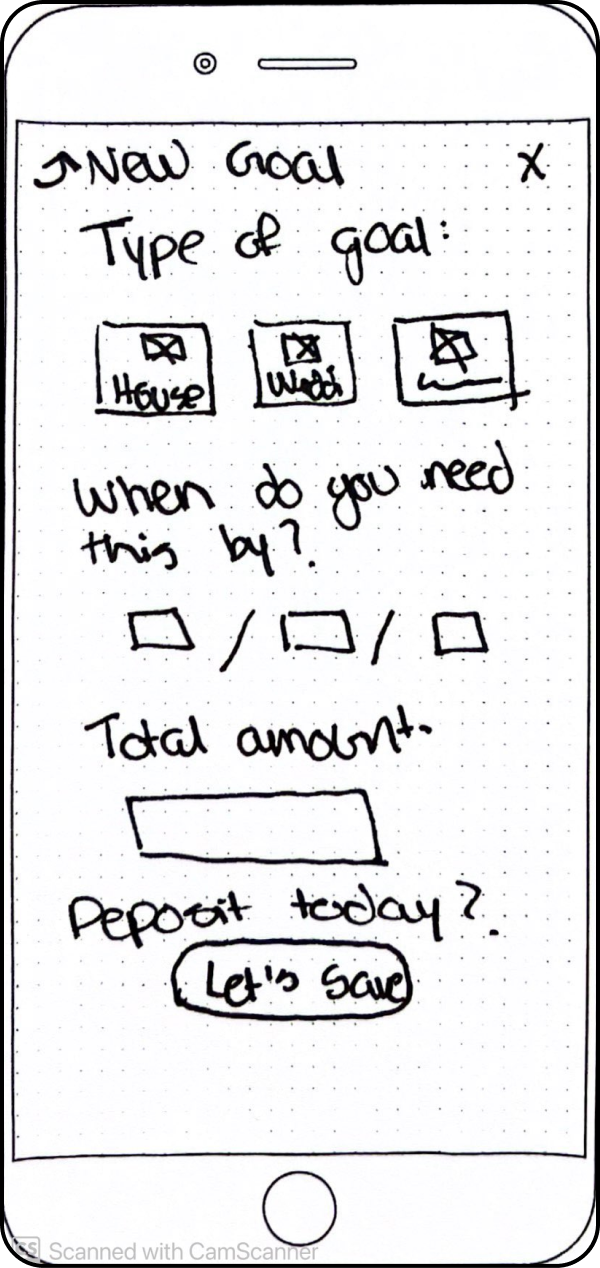 New Goal X
Type of goal:
House
When do you need
this by?
/ /
Total amount.
Deposit today?
Let's Save
CS Scanned with CamScanner